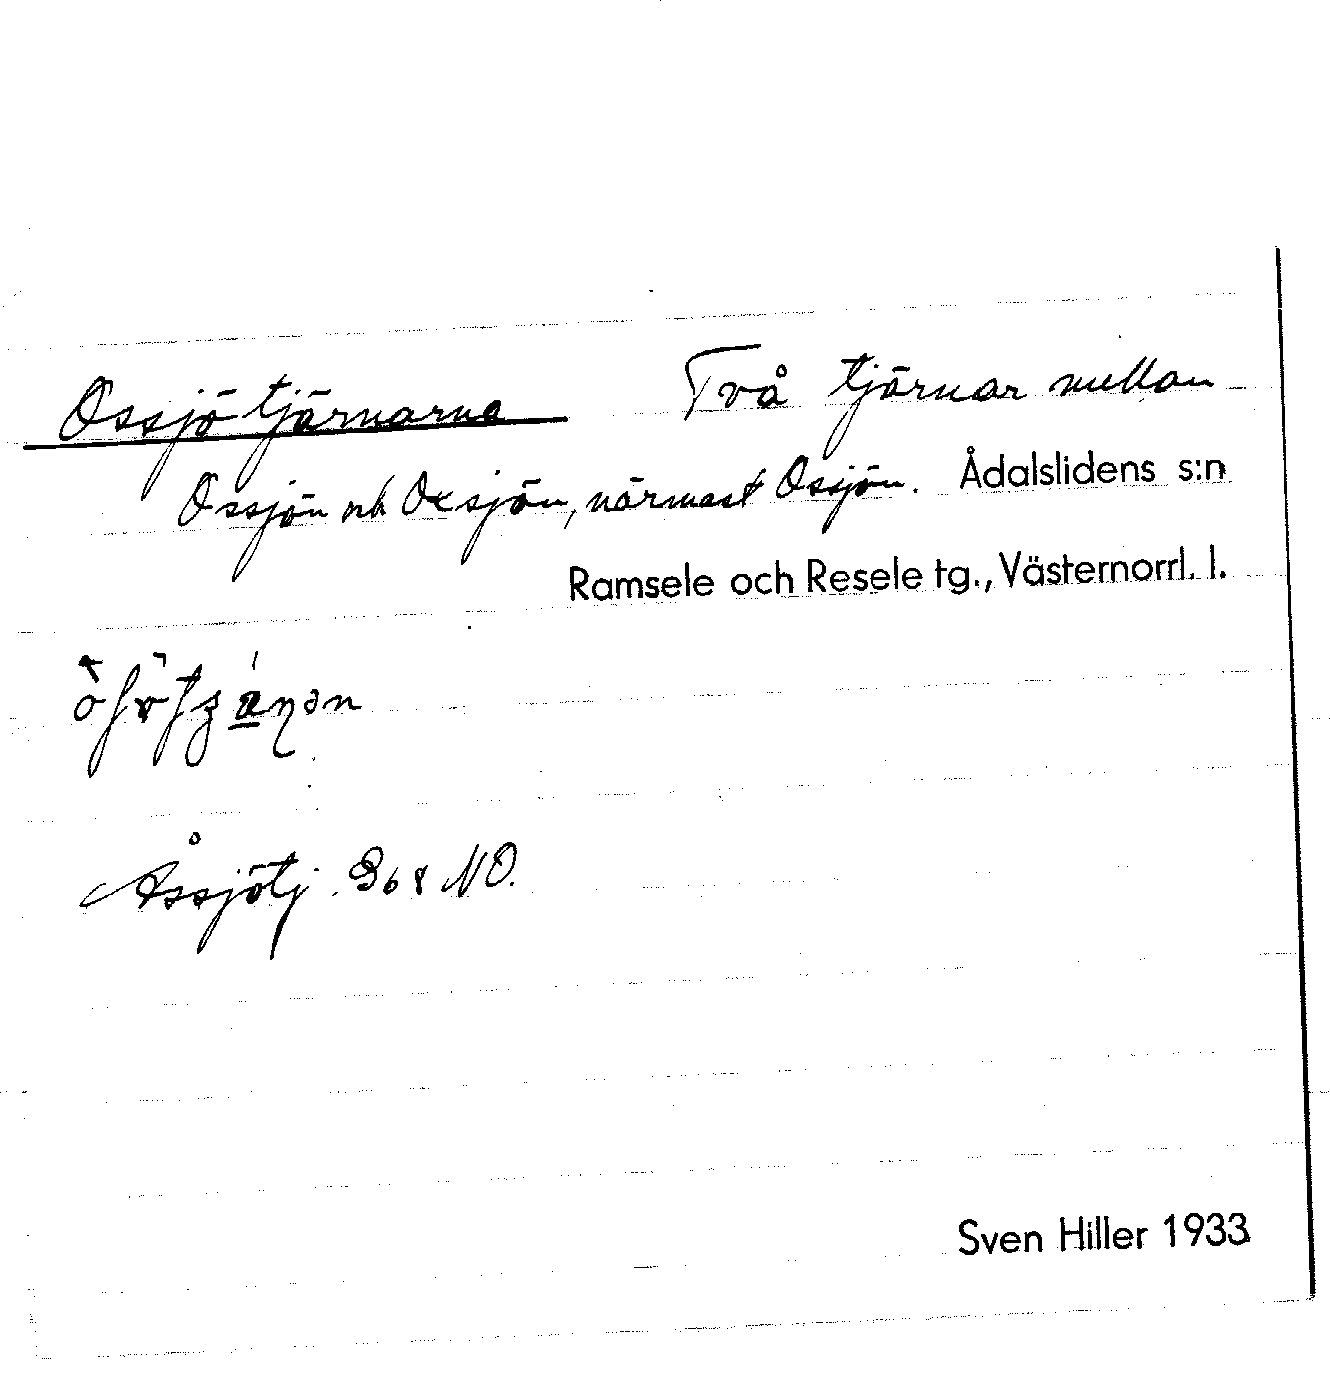 Ossjötjärnarna Två tjärnar mellan
Ossjön och Oxsjön, närmast Ossjön. Ådalslidens s:n
Ramsele och Resele tg., Västernorrl. l.
Åssjötj. Gbl NO.
Sven Hiller 1933